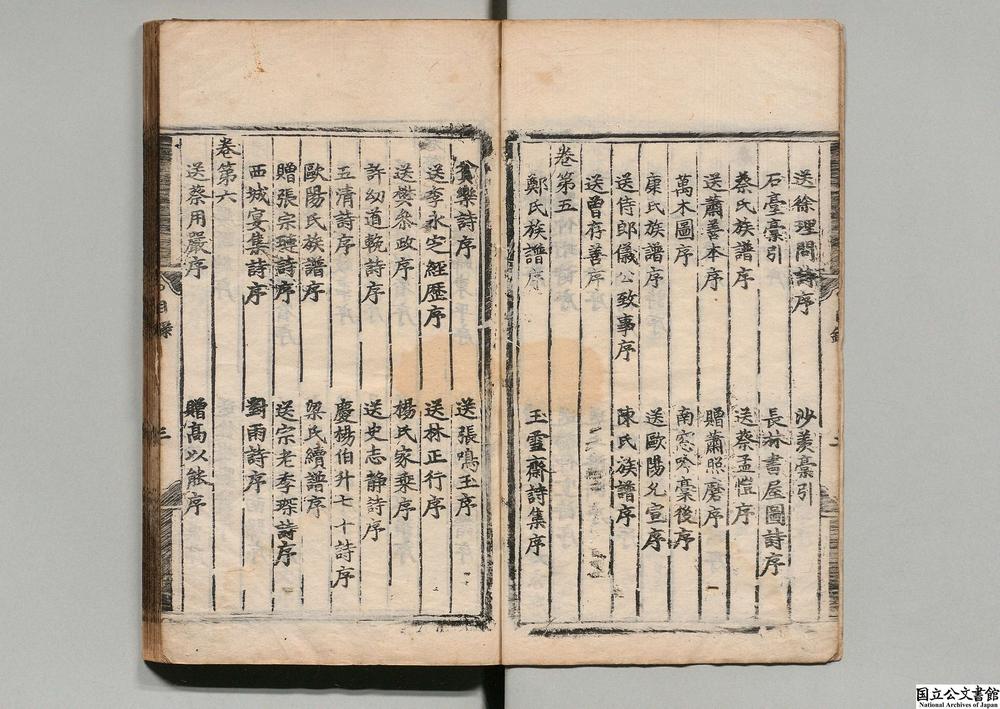 送徐理問詩序　沙羨稾引
石臺稾引　長林書屋圖詩序
蔡氏族譜序　送蔡孟愷序
送蕭善本序　贈蕭照磨序
萬木圖序　南窓吟稾後序
康氏族譜序　送歐陽允宣序
送侍郎儀公致事序　陳氏族譜序
送曽存善序
卷第五
鄭氏族譜序　玉雪齋詩集序
貧樂詩序　送張鳴玉序
送李永定經歷序　送林正行序
送樊叅政序　楊氏家乘序
許㓜道輓詩序　送史志静詩序
五清詩序　慶楊伯升七十詩序
歐陽氏族譜序　梁氏續譜序
贈張宗璉詩序　送宗老季琛詩序
西城宴集詩序　對雨詩序
卷第六
送蔡用嚴序　贈高以能序
目錄　三
国立公文書館
National Archives of Japan